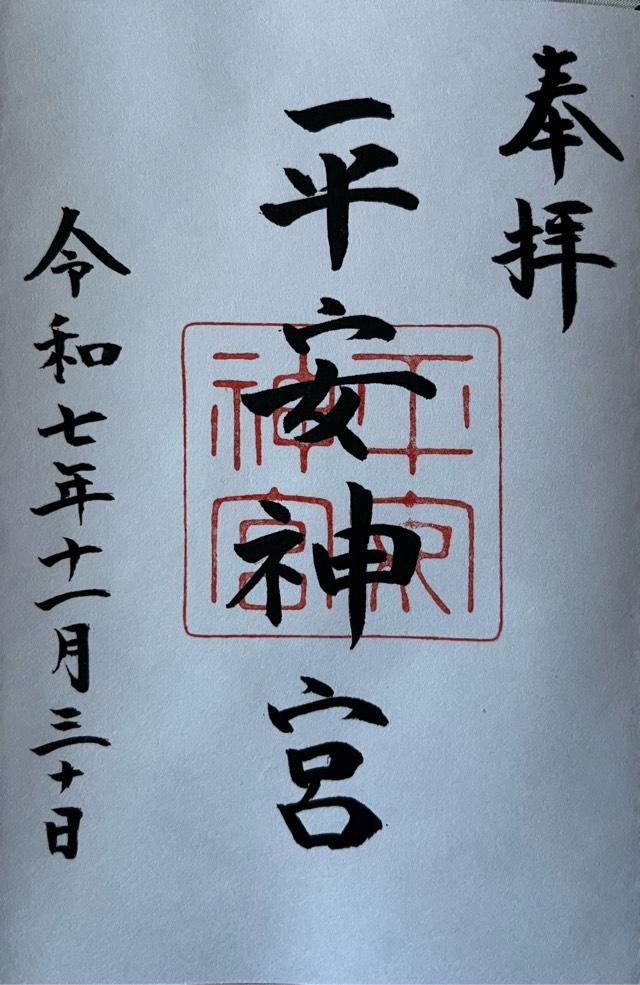 奉拝
平安神宮
平安神宮
令和七年十一月三十日